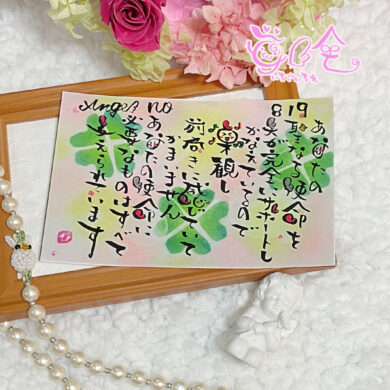 Angel no
819
あなたの
聖なる使命を
天が完全にサポートし
かなえているので
楽観し
前向きに感じていて
かまいません
あなたの使命に
必要なものはすべて
与えられています